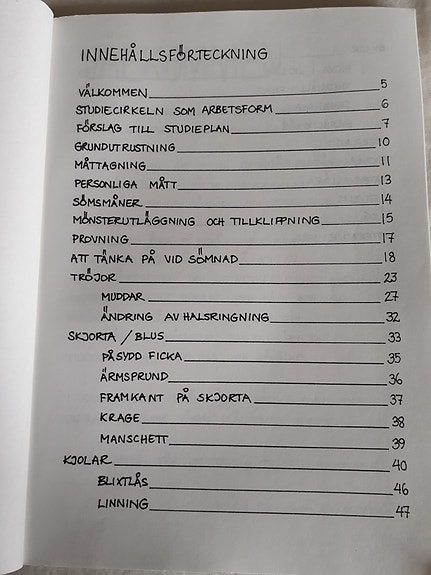 INNEHÅLLSFÖRTECKNING
VÄLKOMMEN 5
STUDIECIRKELN SOM ARBETSFORM 6
FÖRSLAG TILL STUDIEPLAN 7
GRUNDUTRUSTNING 10
MÅTTAGNING 11
PERSONLIGA MÅTT 13
SÖMSMÅNER 14
MÖNSTERUTLÄGGNING OCH TILLKLIPPNING 15
PROVNING 17
ATT TÄNKA PÅ VID SÖMNAD 18
TRÖJOR 23
MUDDAR 27
ÄNDRING AV HALSRINGNING 32
SKJORTA / BLUS 33
PÅSYDD FICKA 35
ÄRMSPRUND 36
FRAMKANT PÅ SKJORTA 37
KRAGE 38
MANSCHETT 39
KJOLAR 40
BLIXTLÅS 46
LINNING 47